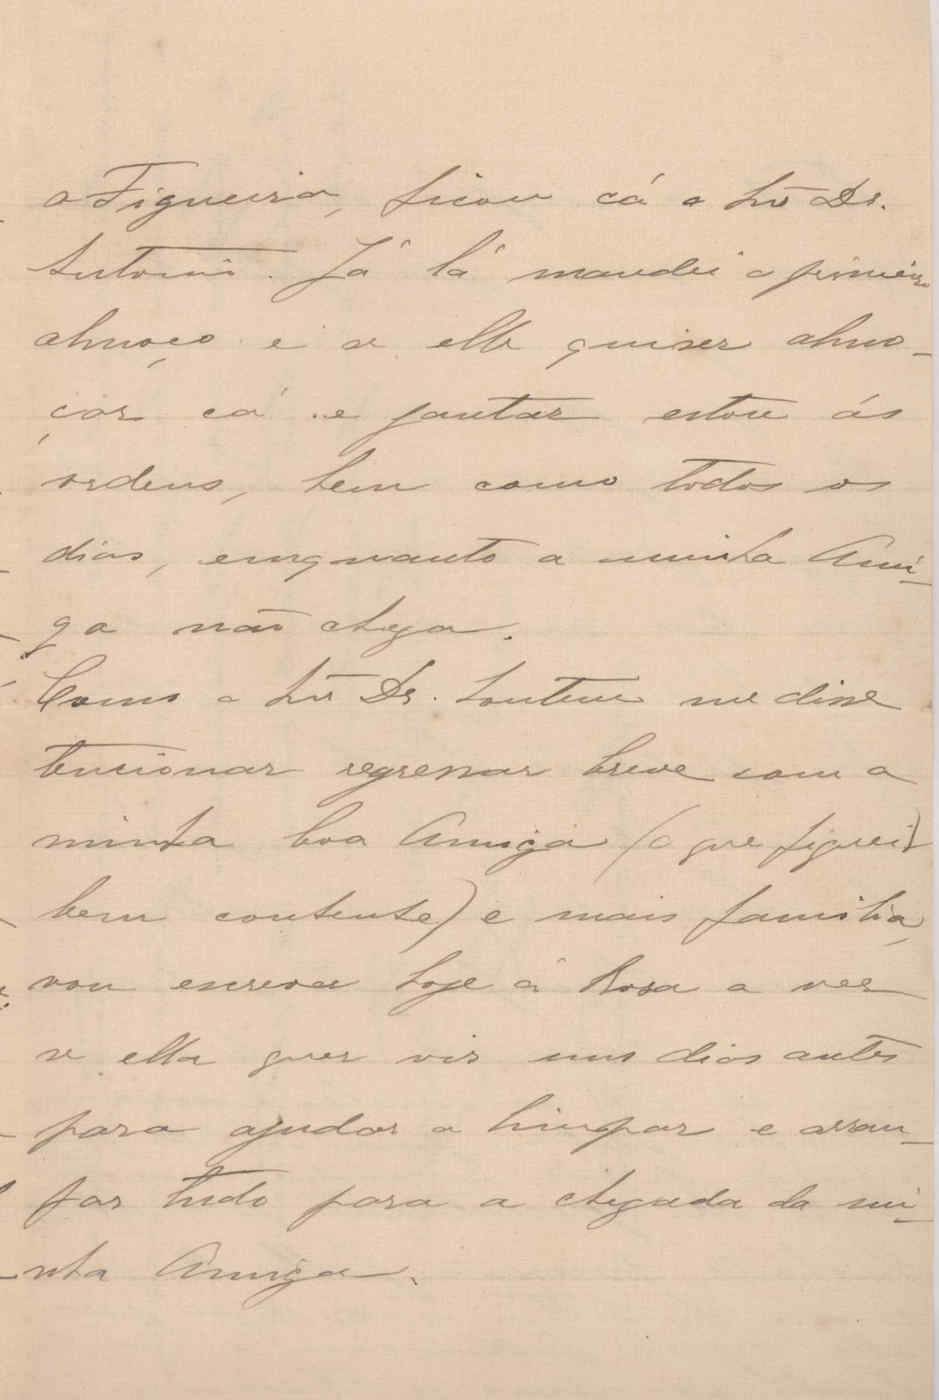 a Figueira, ficou cá o Snr Dr.
Antonio. Já lá mandei o primeiro
almoço e se elle quizer almo-
çar cá e jantar estou ás
ordens, bem como todos os
dias, emquanto a minha Ami-
ga não chega.
Como o Snr Dr. me disse
tencionar regressar breve com a
minha boa Amiga (o que fiquei
bem contente) e mais familia,
vou escrever hoje á Rosa a ver
se ella quer vir uns dias antes
para ajudar a limpar e arran-
jar tudo para a chegada da mi-
nha Amiga.